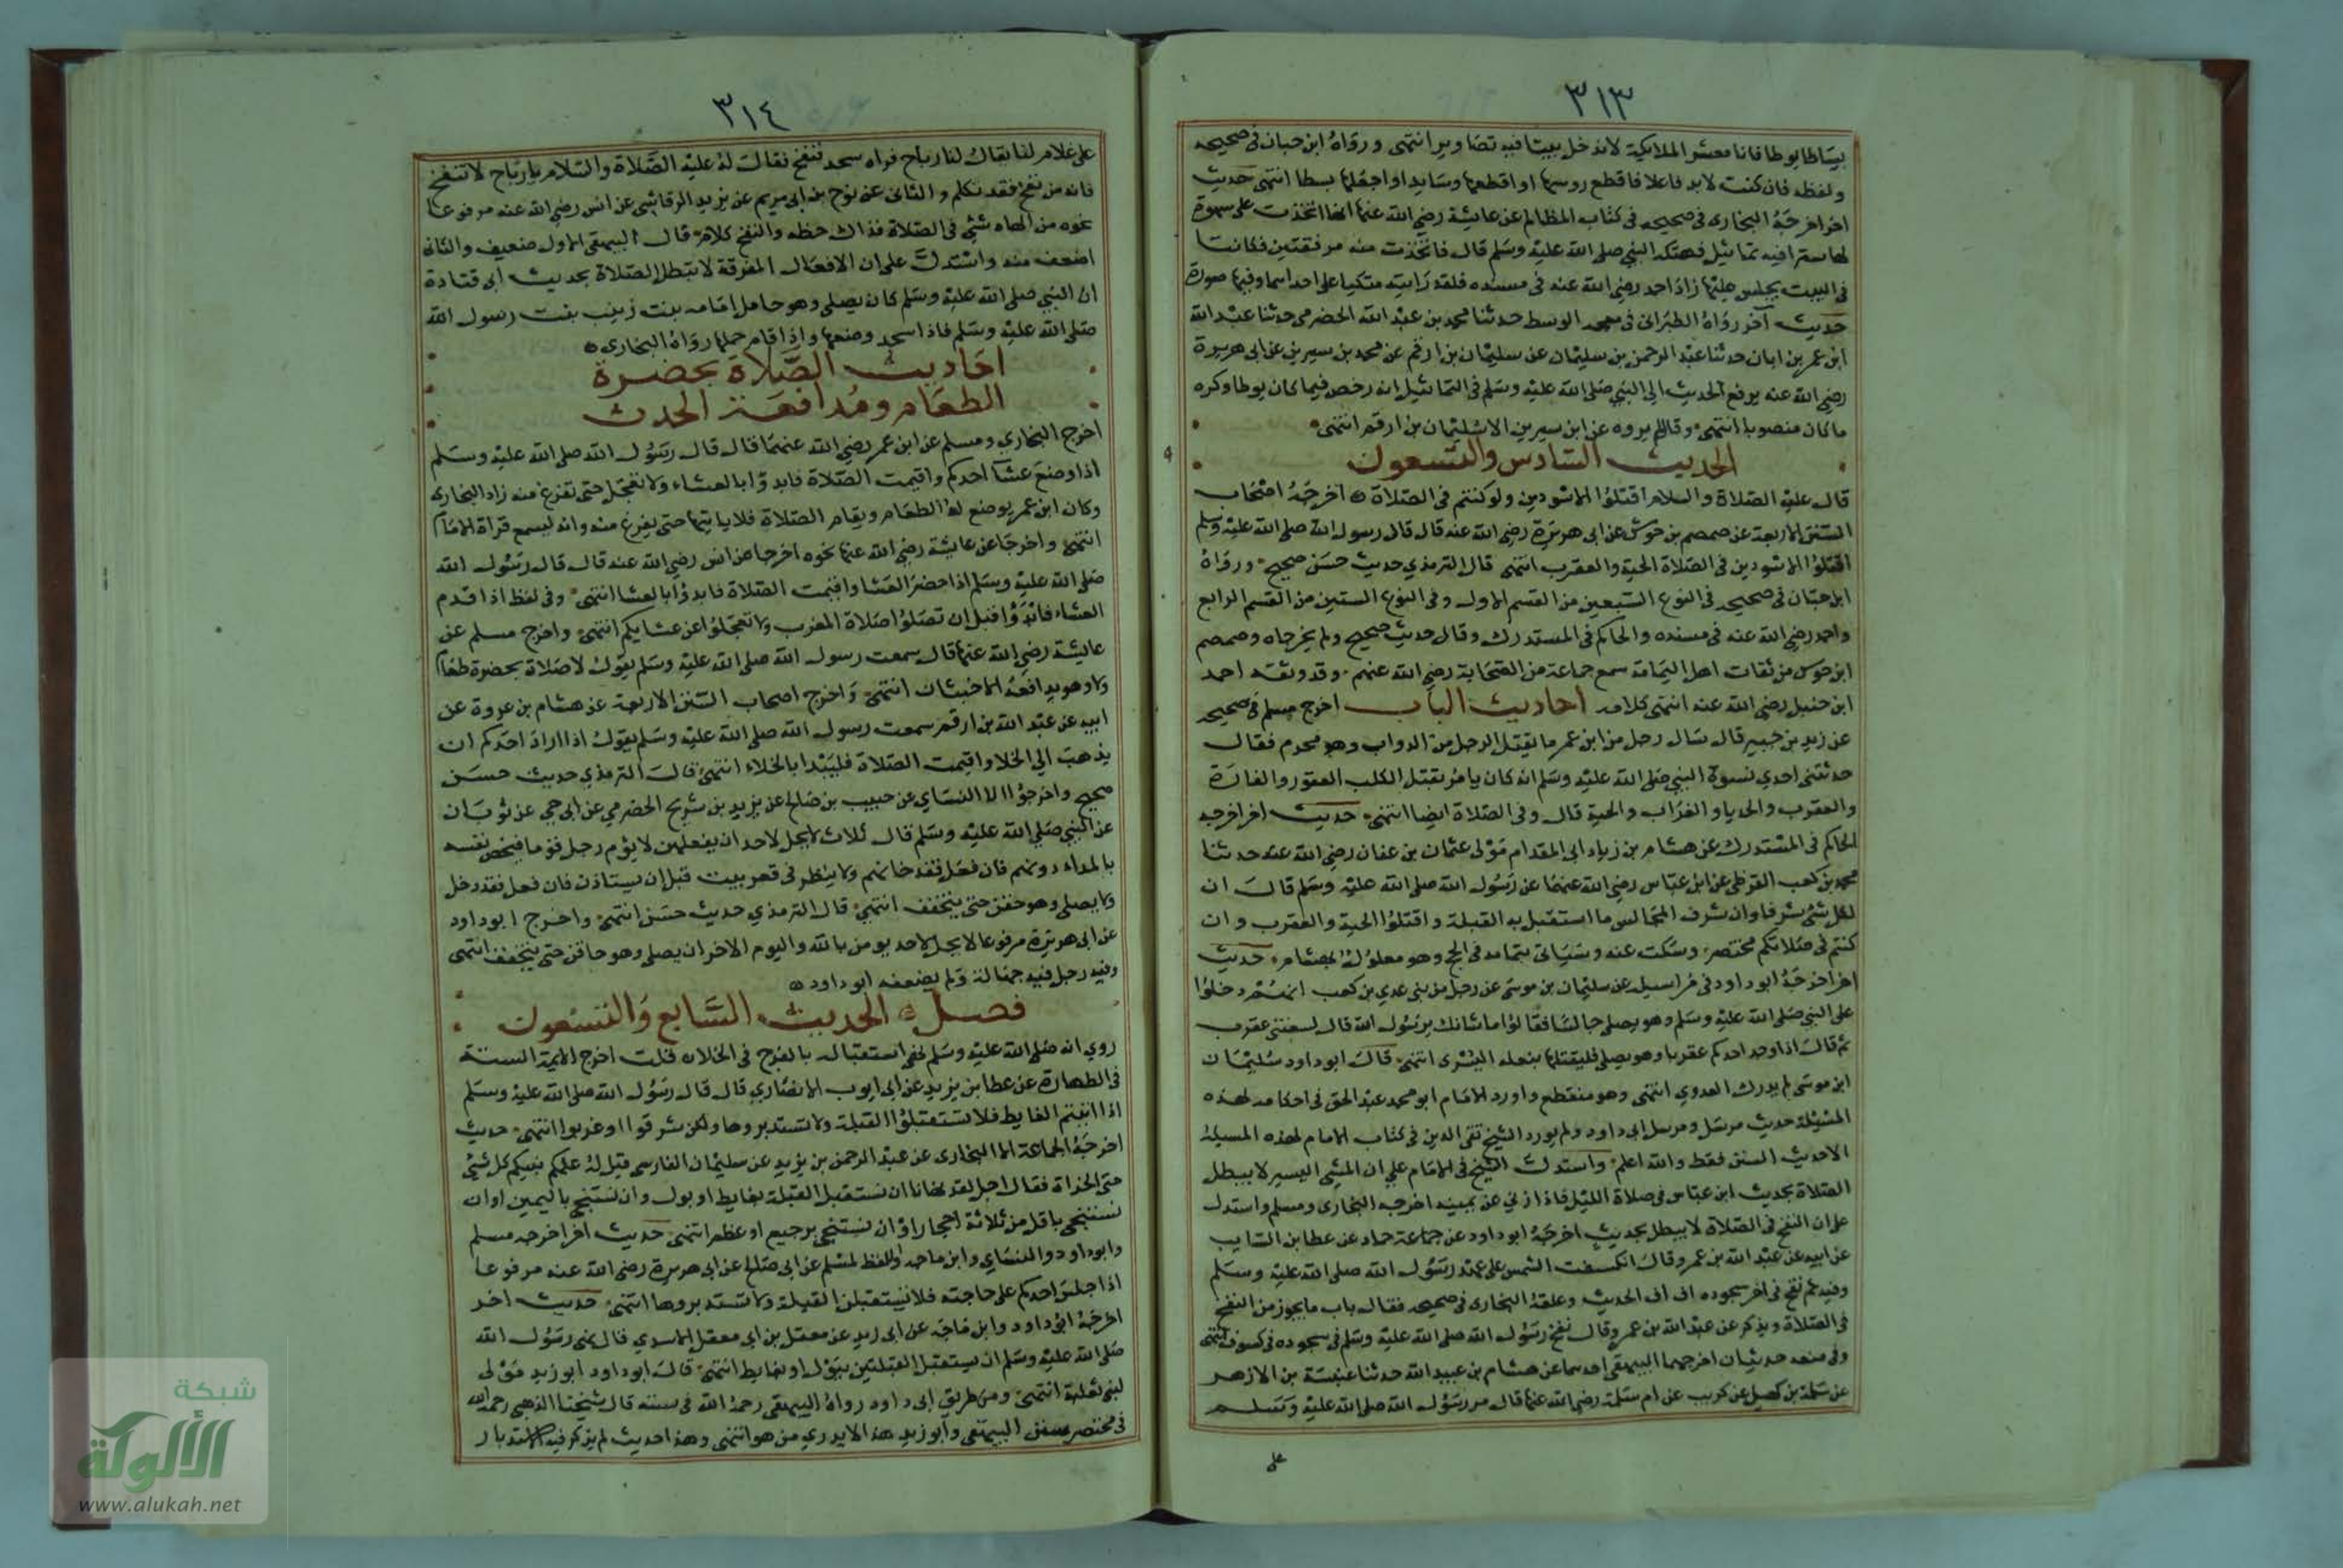 ٣١٣
بساطا يوطا فانا معشر الملايكة لا ندخل بيتا فيه تصاوير انتهى ورواه ابن حبان في صحيحه
ولفظه فان كنت لا بد فاعلا فاقطع روسها او اقطعها وسايد او اجعلها بسطا انتهى حديث
اخر اخرجه البخارى في صحيحه في كتاب المظالم عن عايشة رضي الله عنها انها اتخذت على سهوة
لها سترا فيه تماثيل فهتكه النبي صلى الله عليه وسلم قال فاتخذت منه مرفقتين فكانتا
في البيت يجلس عليها زاد احمد رضي الله عنه في مسنده فلقد رايته متكيا على احداهما وفيها صورة
حديث آخر رواه الطبرانى في معجمه الوسط حدثنا محمد بن عبد الله الحضرمى حدثنا عبد الله
ابن عمر بن ابان حدثنا عبد الرحمن بن سليمان عن سليمان بن ارقم عن محمد بن سيرين عن ابى هريرة
رضي الله عنه يرفع الحديث الى النبي صلى الله عليه وسلم في التماثيل انه رخص فيما كان يوطا وكره
ما كان منصوبا انتهى وقال لم يروه عن ابن سيرين الا سليمان بن ارقم انتهى
الحديث السادس والتسعون
قال عليه الصلاة والسلام اقتلوا الاسودين ولو كنتم في الصلاة اخرجه اصحاب
السنن الاربعة عن ضمضم بن جوس عن ابى هريرة رضي الله عنه قال قال رسول الله صلى الله عليه وسلم
اقتلوا الاسودين في الصلاة الحية والعقرب انتهى قال الترمذي حديث حسن صحيح ورواه
ابن حبان في صحيحه في النوع السبعين من القسم الاول وفى النوع الستين من القسم الرابع
واحمد رضي الله عنه في مسنده والحاكم في المستدرك وقال حديث صحيح ولم يخرجاه وضمضم
ابن جوس من ثقات اهل اليمامة سمع جماعة من الصحابة رضي الله عنهم وقد وثقه احمد
ابن حنبل رضي الله عنه انتهى كلامه احاديث الباب اخرج مسلم في صحيحه
عن زيد بن جبير قال سال رجل من ابن عمر ما يقتل الرجل من الدواب وهو محرم فقال
حدثتنى احدي نسوة النبي صلى الله عليه وسلم انه كان يامر بقتل الكلب العقور والفارة
والعقرب والحديا والغراب والحية قال وفى الصلاة ايضا انتهى حديث اخر اخرجه
الحاكم في المستدرك عن هشام بن زياد ابى المقدام مولى عثمان بن عفان رضي الله عنه حدثنا
محمد بن كعب القرظى عن ابن عباس رضي الله عنهما عن رسول الله صلى الله عليه وسلم قال ان
لكل شئ شرفا وان شرف المجالس ما استقبل به القبلة واقتلوا الحية والعقرب وان
كنتم في صلاتكم مختصر وسكت عنه وسياتى بتمامه في الحج وهو معلول بهشام حديث
اخر اخرجه ابو داود في مراسيله عن سليمان بن موسى عن رجل من بنى عدي بن كعب انهم دخلوا
على النبي صلى الله عليه وسلم وهو يصلى جالسا فقالوا ما شانك يرسول الله قال لسعتنى عقرب
ثم قال اذا وجد احدكم عقربا وهو يصلي فليقتلها بنعله اليسرى انتهى قال ابو داود سليمان
ابن موسى لم يدرك العدوي انتهى وهو منقطع واورد الامام ابو محمد عبد الحق في احكامه لهذه
المسئلة حديث مرسل ومرسل ابى داود ولم يورد الشيخ تقى الدين في كتاب الامام لهذه المسيلة
الا حديث السنن فقط والله اعلم واستدل الشيخ في الامام علي ان المشي اليسير لا يبطل
الصلاة بحديث ابن عباس في صلاة الليل فاذا زني عن يمينه اخرجه البخارى ومسلم واستدل
على ان النفخ في الصلاة لا يبطل بحديث اخرجه ابو داود عن جماعة حماد عن عطا بن السايب
عن ابيه عن عبد الله بن عمرو قال انكسفت الشمس على عهد رسول الله صلى الله عليه وسلم
وفيه ثم نفخ في اخر سجوده اف اف الحديث وعلقه البخارى في صحيحه فقال باب ما يجوز من النفخ
في الصلاة ويذكر عن عبد الله بن عمرو قال نفخ رسول الله صلى الله عليه وسلم في سجوده في كسوف انتهى
وفى منعه حديثان اخرجهما البيهقى احدهما عن هشام بن عبيد الله حدثنا عنبسة بن الازهر
عن سلمة بن كهيل عن كريب عن ام سلمة رضي الله عنها قال مر رسول الله صلى الله عليه وسلم
على
٣١٤
على غلام لنا يقال لنا رباح فراه سجد فنفخ فقال له عليه الصلاة والسلام يا رباح لا تنفخ
فانه من نفخ فقد تكلم والثانى عن نوح بن ابى مريم عن يزيد الرقاشى عن انس رضي الله عنه مرفوعا
نحوه من الهاه شئ في الصلاة فذاك حظه والنفخ كلام قال البيهقى الاول ضعيف والثانى
اضعف منه واستدل على ان الافعال المفرقة لا تبطل الصلاة بحديث ابى قتادة
ان النبي صلى الله عليه وسلم كان يصلي وهو حامل امامه بنت زينب بنت رسول الله
صلى الله عليه وسلم فاذا سجد وضعها واذا قام حملها رواه البخارى
احاديث الصلاة بحضرة
الطعام ومدافعة الحدث
اخرج البخاري ومسلم عن ابن عمر رضي الله عنهما قال قال رسول الله صلى الله عليه وسلم
اذا وضع عشا احدكم واقيمت الصلاة فابدوا بالعشاء ولا تعجل حتى تفرغ منه زاد البخارى
وكان ابن عمر يوضع له الطعام ويقام الصلاة فلا ياتيها حتى يفرغ منه وانه ليسمع قراة الامام
انتهى واخرجا عن عايشة رضي الله عنها نحوه اخرجا عن انس رضي الله عنه قال قال رسول الله
صلى الله عليه وسلم اذا حضر العشا واقيمت الصلاة فابدؤا بالعشا انتهى وفى لفظ اذا قدم
العشاء فابدؤا قبل ان تصلوا صلاة المغرب ولا تعجلوا عن عشايكم انتهى واخرج مسلم عن
عايشة رضي الله عنها قال سمعت رسول الله صلى الله عليه وسلم يقول لا صلاة بحضرة طعام
ولا وهو يدافعه الاخبثان انتهى واخرج اصحاب السنن الاربعة عن هشام بن عروة عن
ابيه عن عبد الله بن ارقم سمعت رسول الله صلى الله عليه وسلم يقول اذا اراد احدكم ان
يذهب الي الخلا واقيمت الصلاة فليبدا بالخلاء انتهى قال الترمذي حديث حسن
صحيح واخرجوا الا النساي عن حبيب بن صالح عن يزيد بن شريح الحضرمي عن ابى حي عن ثوبان
عن النبي صلي الله عليه وسلم قال ثلاث لا يحل لاحد ان يفعلهن لا يؤم رجل قوما فيخص نفسه
بالدعاء دونهم فان فعل فقد خانهم ولا ينظر في قعر بيت قبل ان يستاذن فان فعل فقد دخل
ولا يصلى وهو حقن حتى يتخفف انتهى قال الترمذي حديث حسن انتهى واخرج ابو داود
عن ابى هريرة مرفوعا لا يحل لاحد يومن بالله واليوم الاخر ان يصلى وهو حاقن حتى يتخفف انتهى
وفيه رجل فيه جهالة ولم يضعفه ابو داود
فصل الحديث السابع والتسعون
روي انه صلى الله عليه وسلم نهى استقبال بالفرج في الخلا قلت اخرج الايمة الستة
في الطهارة عن عطا بن يزيد عن ابى ايوب الانصاري قال قال رسول الله صلى الله عليه وسلم
اذا اتيتم الغايط فلا تستقبلوا القبلة ولا تستدبروها ولكن شرقوا او غربوا انتهى حديث
اخرجه الجماعة الا البخارى عن عبد الرحمن بن يزيد عن سليمان الفارسى قيل له علمكم نبيكم كل شئ
حتى الخراة فقال اجل لقد نهانا ان نستقبل القبلة بغايط او بول وان نستنجى باليمين او ان
نستنجى باقل من ثلاثة احجار او ان نستنجى برجيع او عظم انتهى حديث اخر اخرجه مسلم
وابو داود والنساي وابن ماجه واللفظ لمسلم عن ابى صالح عن ابى هريرة رضي الله عنه مرفوعا
اذا جلس احدكم على حاجته فلا يستقبلن القبلة ولا تستدبروها انتهى حديث اخر
اخرجه ابو داود وابن ماجه عن ابى زيد عن معقل بن ابي معقل الاسدي قال نهى رسول الله
صلى الله عليه وسلم ان يستقبل القبلتين ببول او بغايط انتهى قال ابو داود ابو زيد مولى
لبنى ثعلبة انتهى ومن طريق ابى داود رواه البيهقى رحمه الله في سننه قال شيخنا الذهبى رحمه الله
في مختصر سنن البيهقى وابو زيد هذا لا يدري من هو انتهى وهذا حديث لم يذكر فيه الاستدبار
شبكة
الألوكة
www.alukah.net